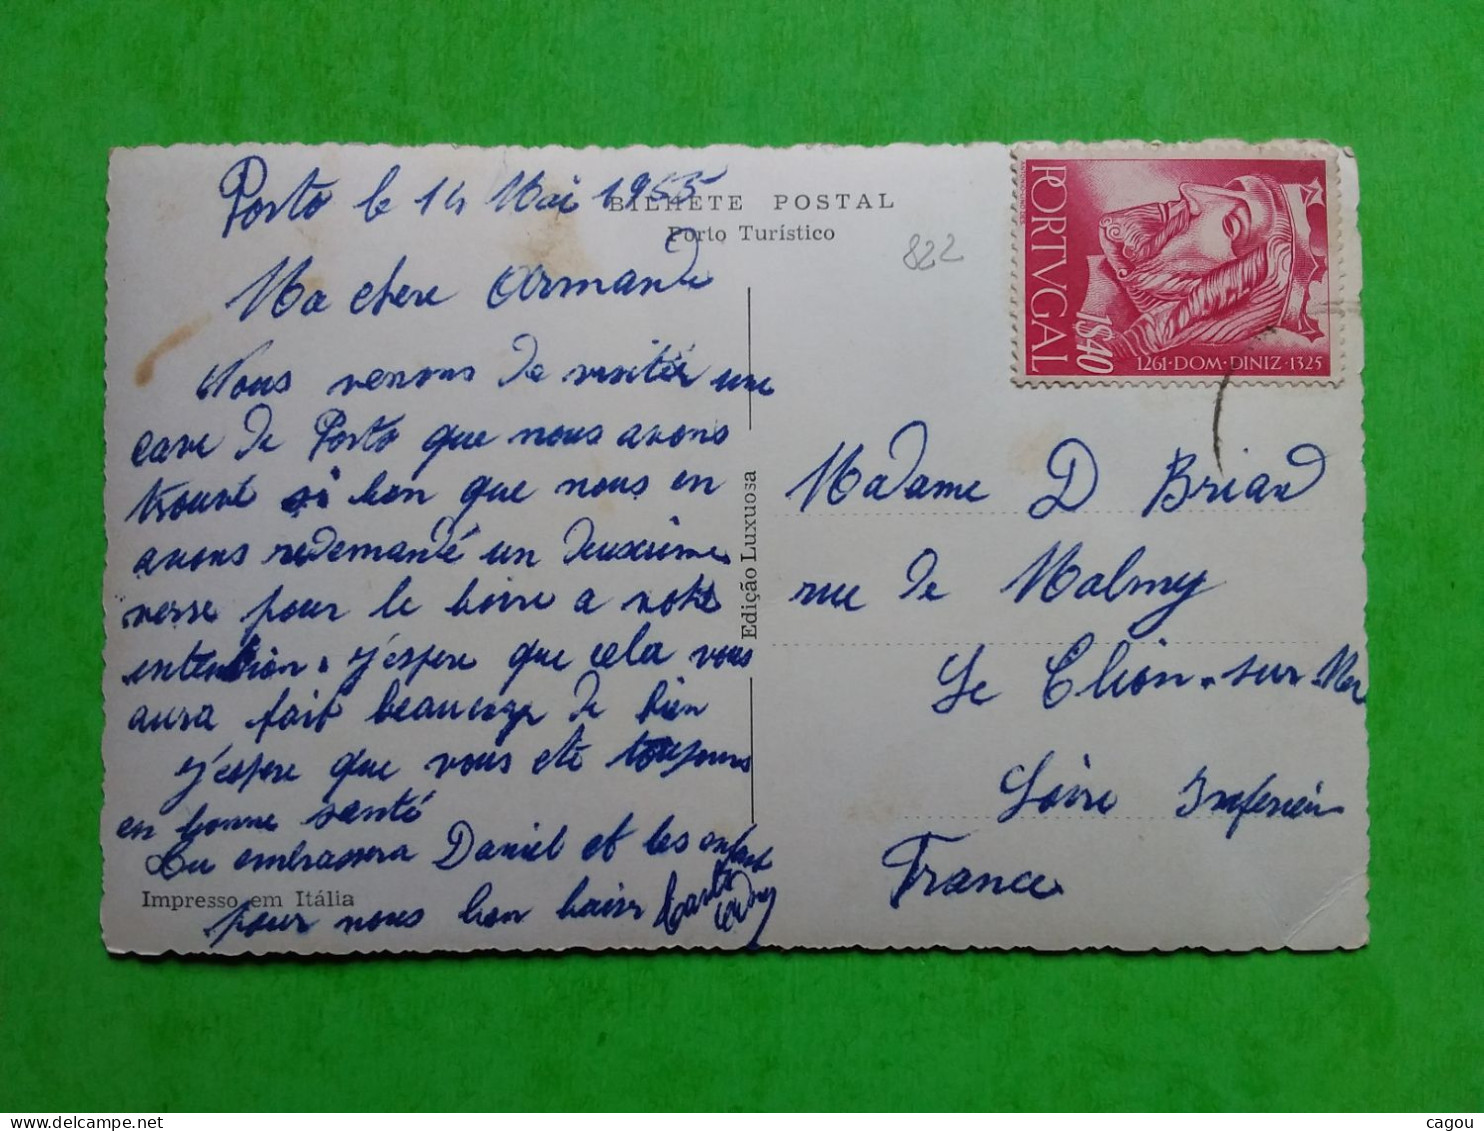 Porto le 14 Mai 1955
BILHETE POSTAL
Porto Turístico
822
Ma chere Armande
Nous venons de visiter une
cave de Porto que nous avons
trouvé si bon que nous en
avons redemandé un deuxième
verre pour le boire a votre
intention. j'espere que cela vous
aura fait beaucoup de bien
j'espere que vous ete toujours
en bonne santé
Tu embrassera Daniel et les enfant
pour nous bon baiser
Impresso em Itália
Edição Luxuosa
PORTVGAL
1$40
1261·DOM·DINIZ·1325
Madame D Briand
rue de Malmy
Le Clion-sur Mer
Loire Inferieure
France
cagou